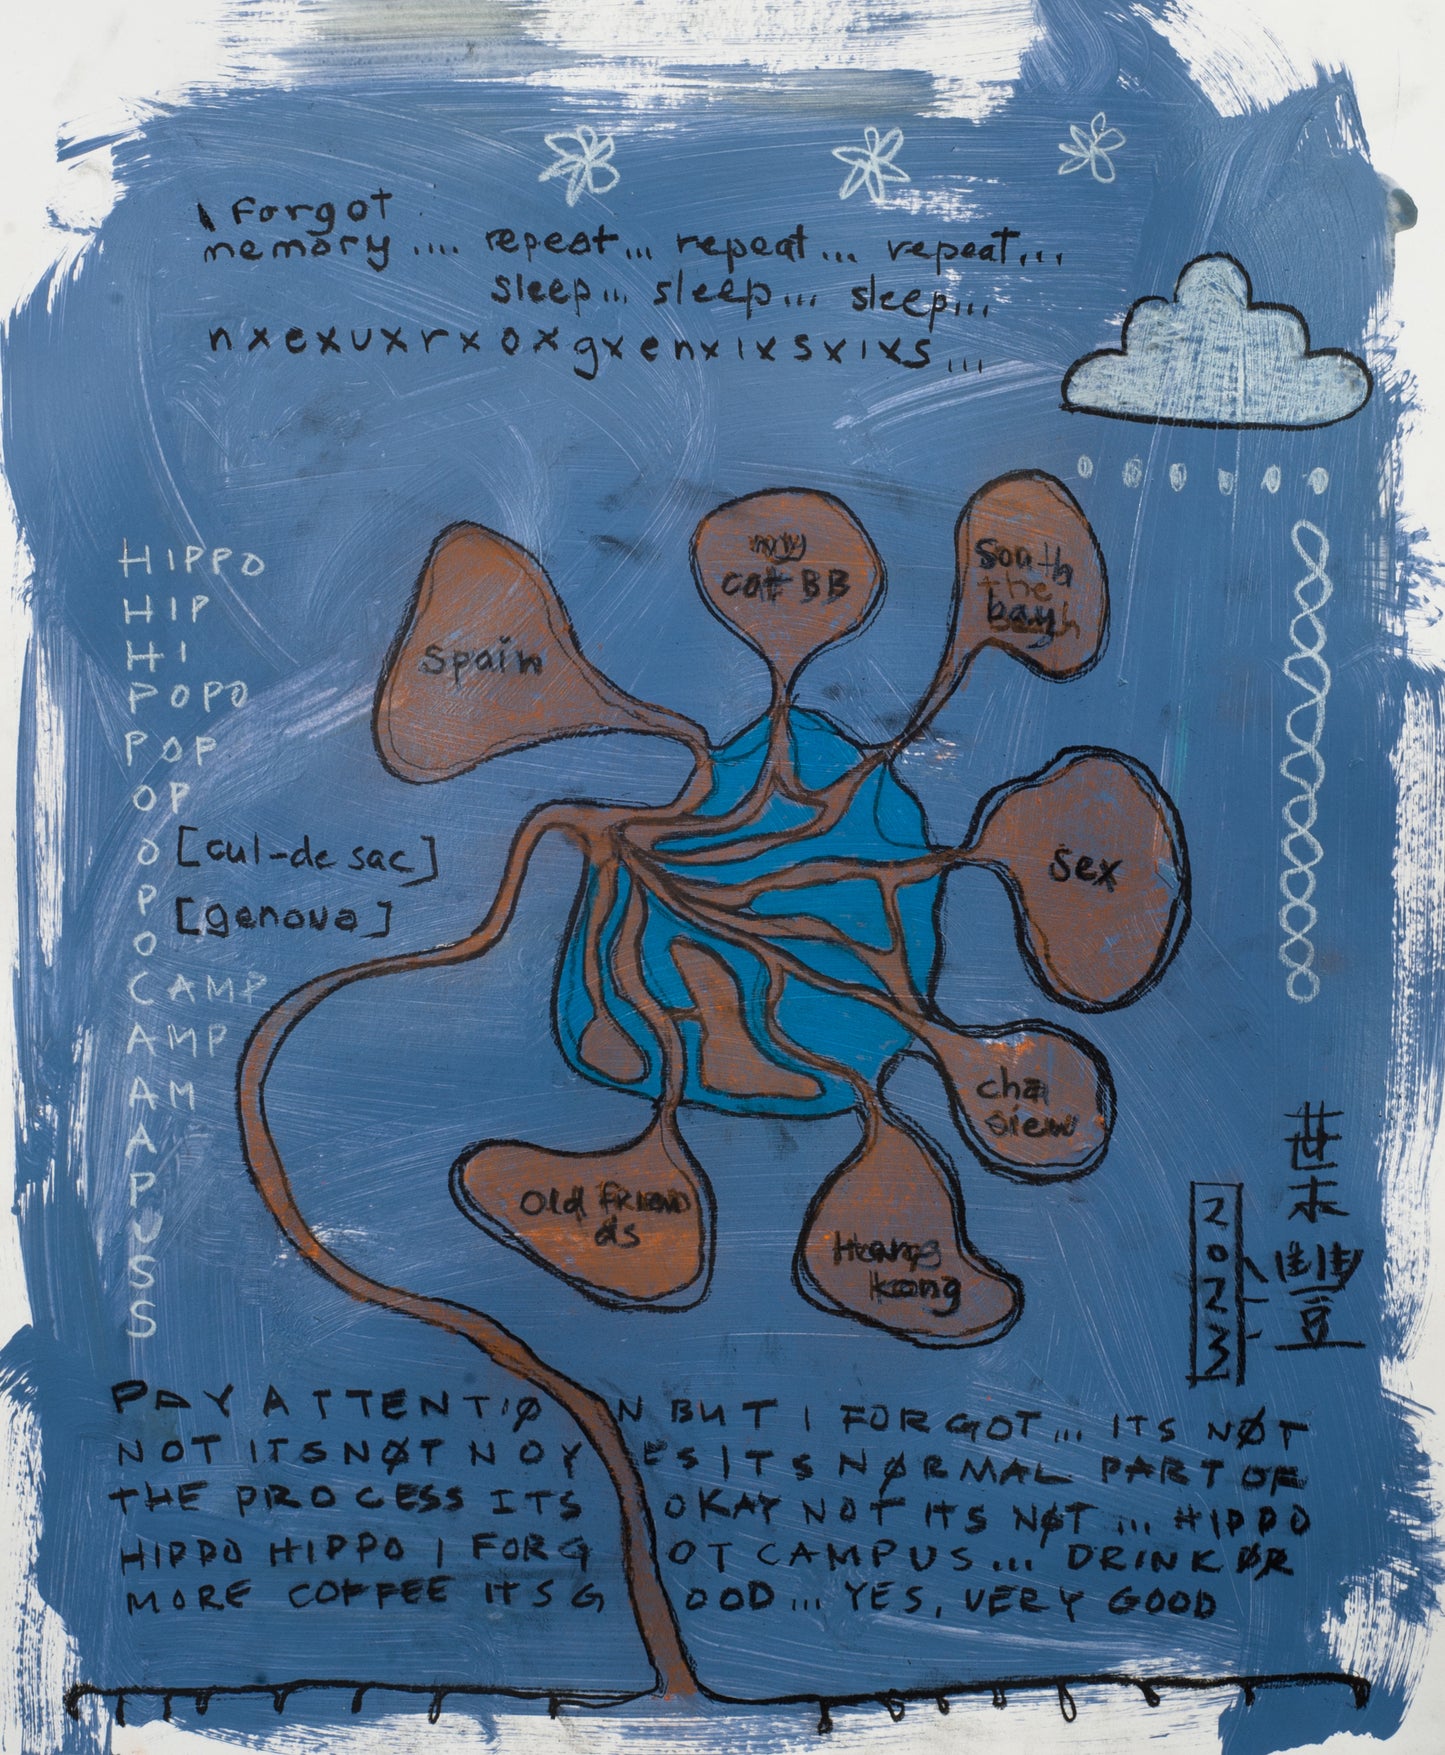 I Forgot
memory.... repeat... repeat... repeat...
sleep... sleep... sleep...
nxexuxrxoxgxenxixsxixs...
my
cat BB
South
the
bay
Spain
HIPPO
HIP
HI
POPO
POP
OP
O
P
O
CAMP
AMP
AM
A
P
U
S
S
[cul-de sac]
[genova]
sex
cha
siew
Old FRIEN
ds
Hong
kong
世
末
豐
2023
PAY ATTENTIØN BUT I FORGOT... ITS NØT
NOT ITS NØT NO YES ITS NØRMAL PART OF
THE PROCESS ITS OKAY NOT ITS NØT... HIPPO
HIPPO HIPPO I FORGOT CAMPUS... DRINK ØR
MORE COFFEE ITS GOOD... YES, VERY GOOD